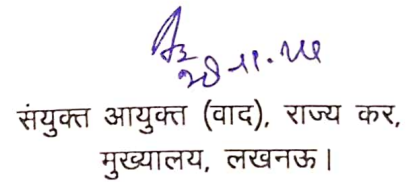 संयुक्त आयुक्त (वाद), राज्य कर,
मुख्यालय, लखनऊ।